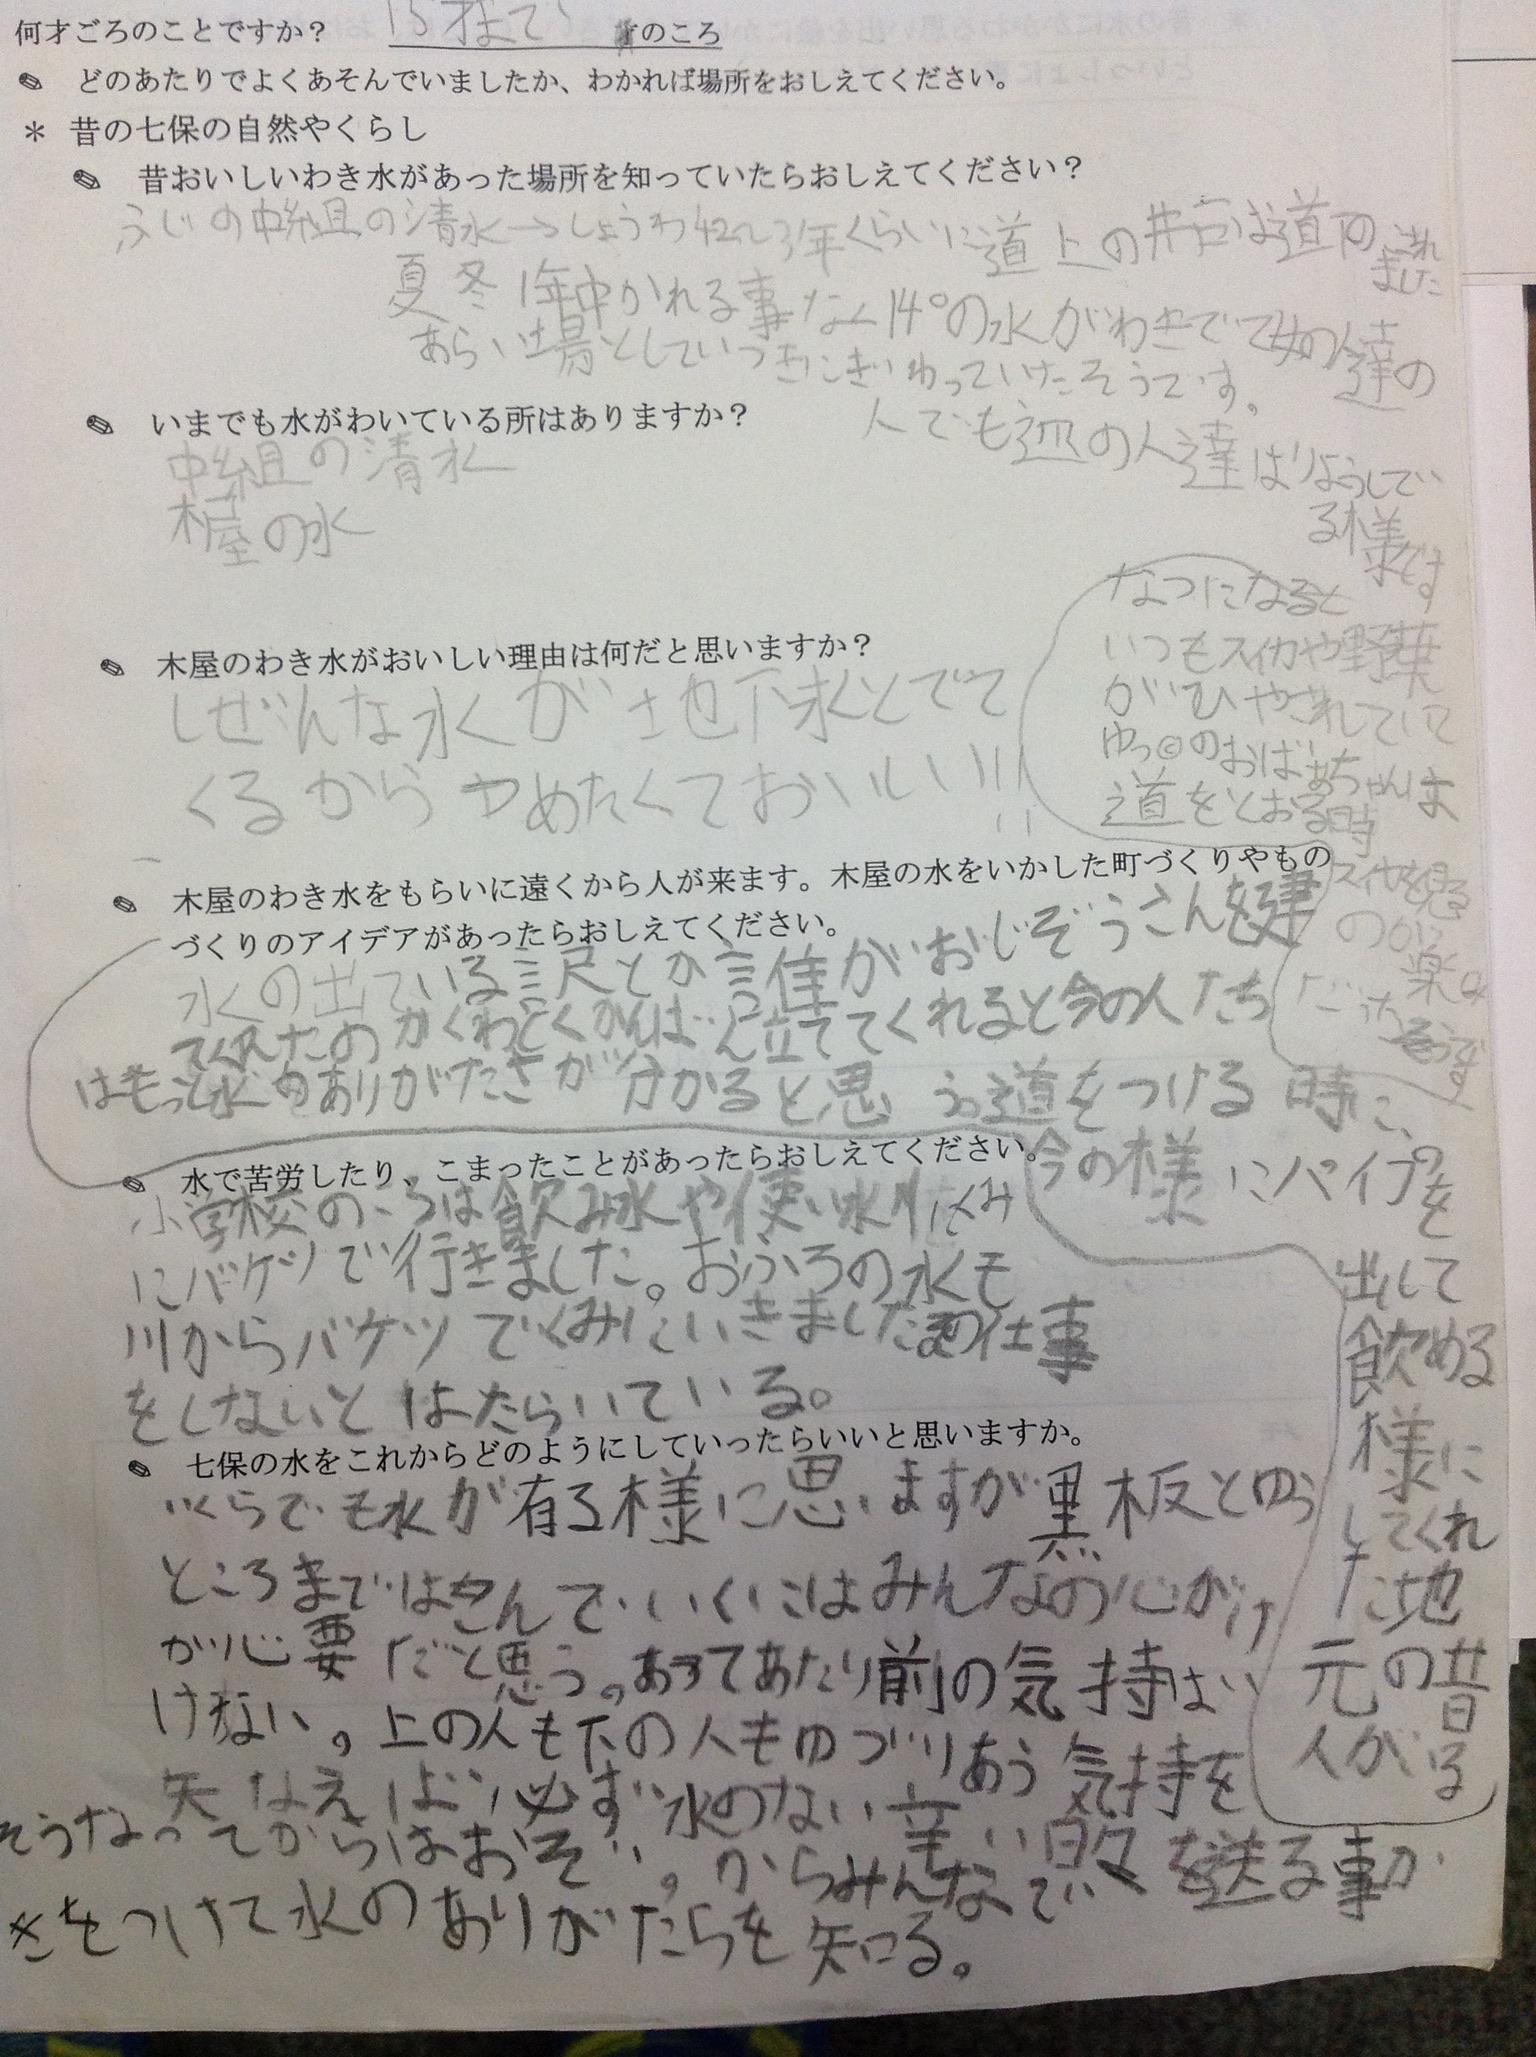 何才ごろのことですか？ 15才まで 才のころ
どのあたりでよくあそんでいましたか、わかれば場所をおしえてください。
＊ 昔の七保の自然やくらし
昔おいしいわき水があった場所を知っていたらおしえてください？
ふじの中組の清水→しょうわ42 3年くらいに道上の井戸は道下の
ました
夏冬1年中かれる事なく14°の水がわきでて女の人達の
あらい場としていつもにぎわっていたそうです。
人でも辺の人達はりようしてい
る様です
いまでも水がわいている所はありますか？
中組の清水
木屋の水
なつになると
いつもスイカや野菜
がひやされていて
ゆっ©のおばあちゃんは
道をとおる時
スイカを見る
のが楽み
だったそうです
木屋のわき水がおいしい理由は何だと思いますか？
しぜんな水が地下水とでて
くるからつめたくておいしい!!
木屋のわき水をもらいに遠くから人が来ます。木屋の水をいかした町づくりやもの
づくりのアイデアがあったらおしえてください。
水の出ている訳とか誰がおじぞうさんを建
てくれたのかくわしくかんばん立ててくれると今の人たち
はもっと水のありがたさが分かると思う。道をつける時に、
今の様にパイプを
出して
飲める
様に
してくれ
た地
元の昔
人がる
水で苦労したり、こまったことがあったらおしえてください。
小学校のころは飲み水や使い水はくみ
にバケツで行きました。おふろの水も
川からバケツでくみにいきました の仕事
をしないとはたらいている。
七保の水をこれからどのようにしていったらいいと思いますか。
いくらでも水が有る様に思いますが黒板とゆう
ところまではこんでいくにはみんなの心がけ
が心要だと思う。あってあたり前の気持はい
けない。上の人も下の人もゆづりあう気持を
失なえば必ず水のない辛い日々を送る事か
そうなってからはおそい。からみんなで
きをつけて水のありがたらを知る。